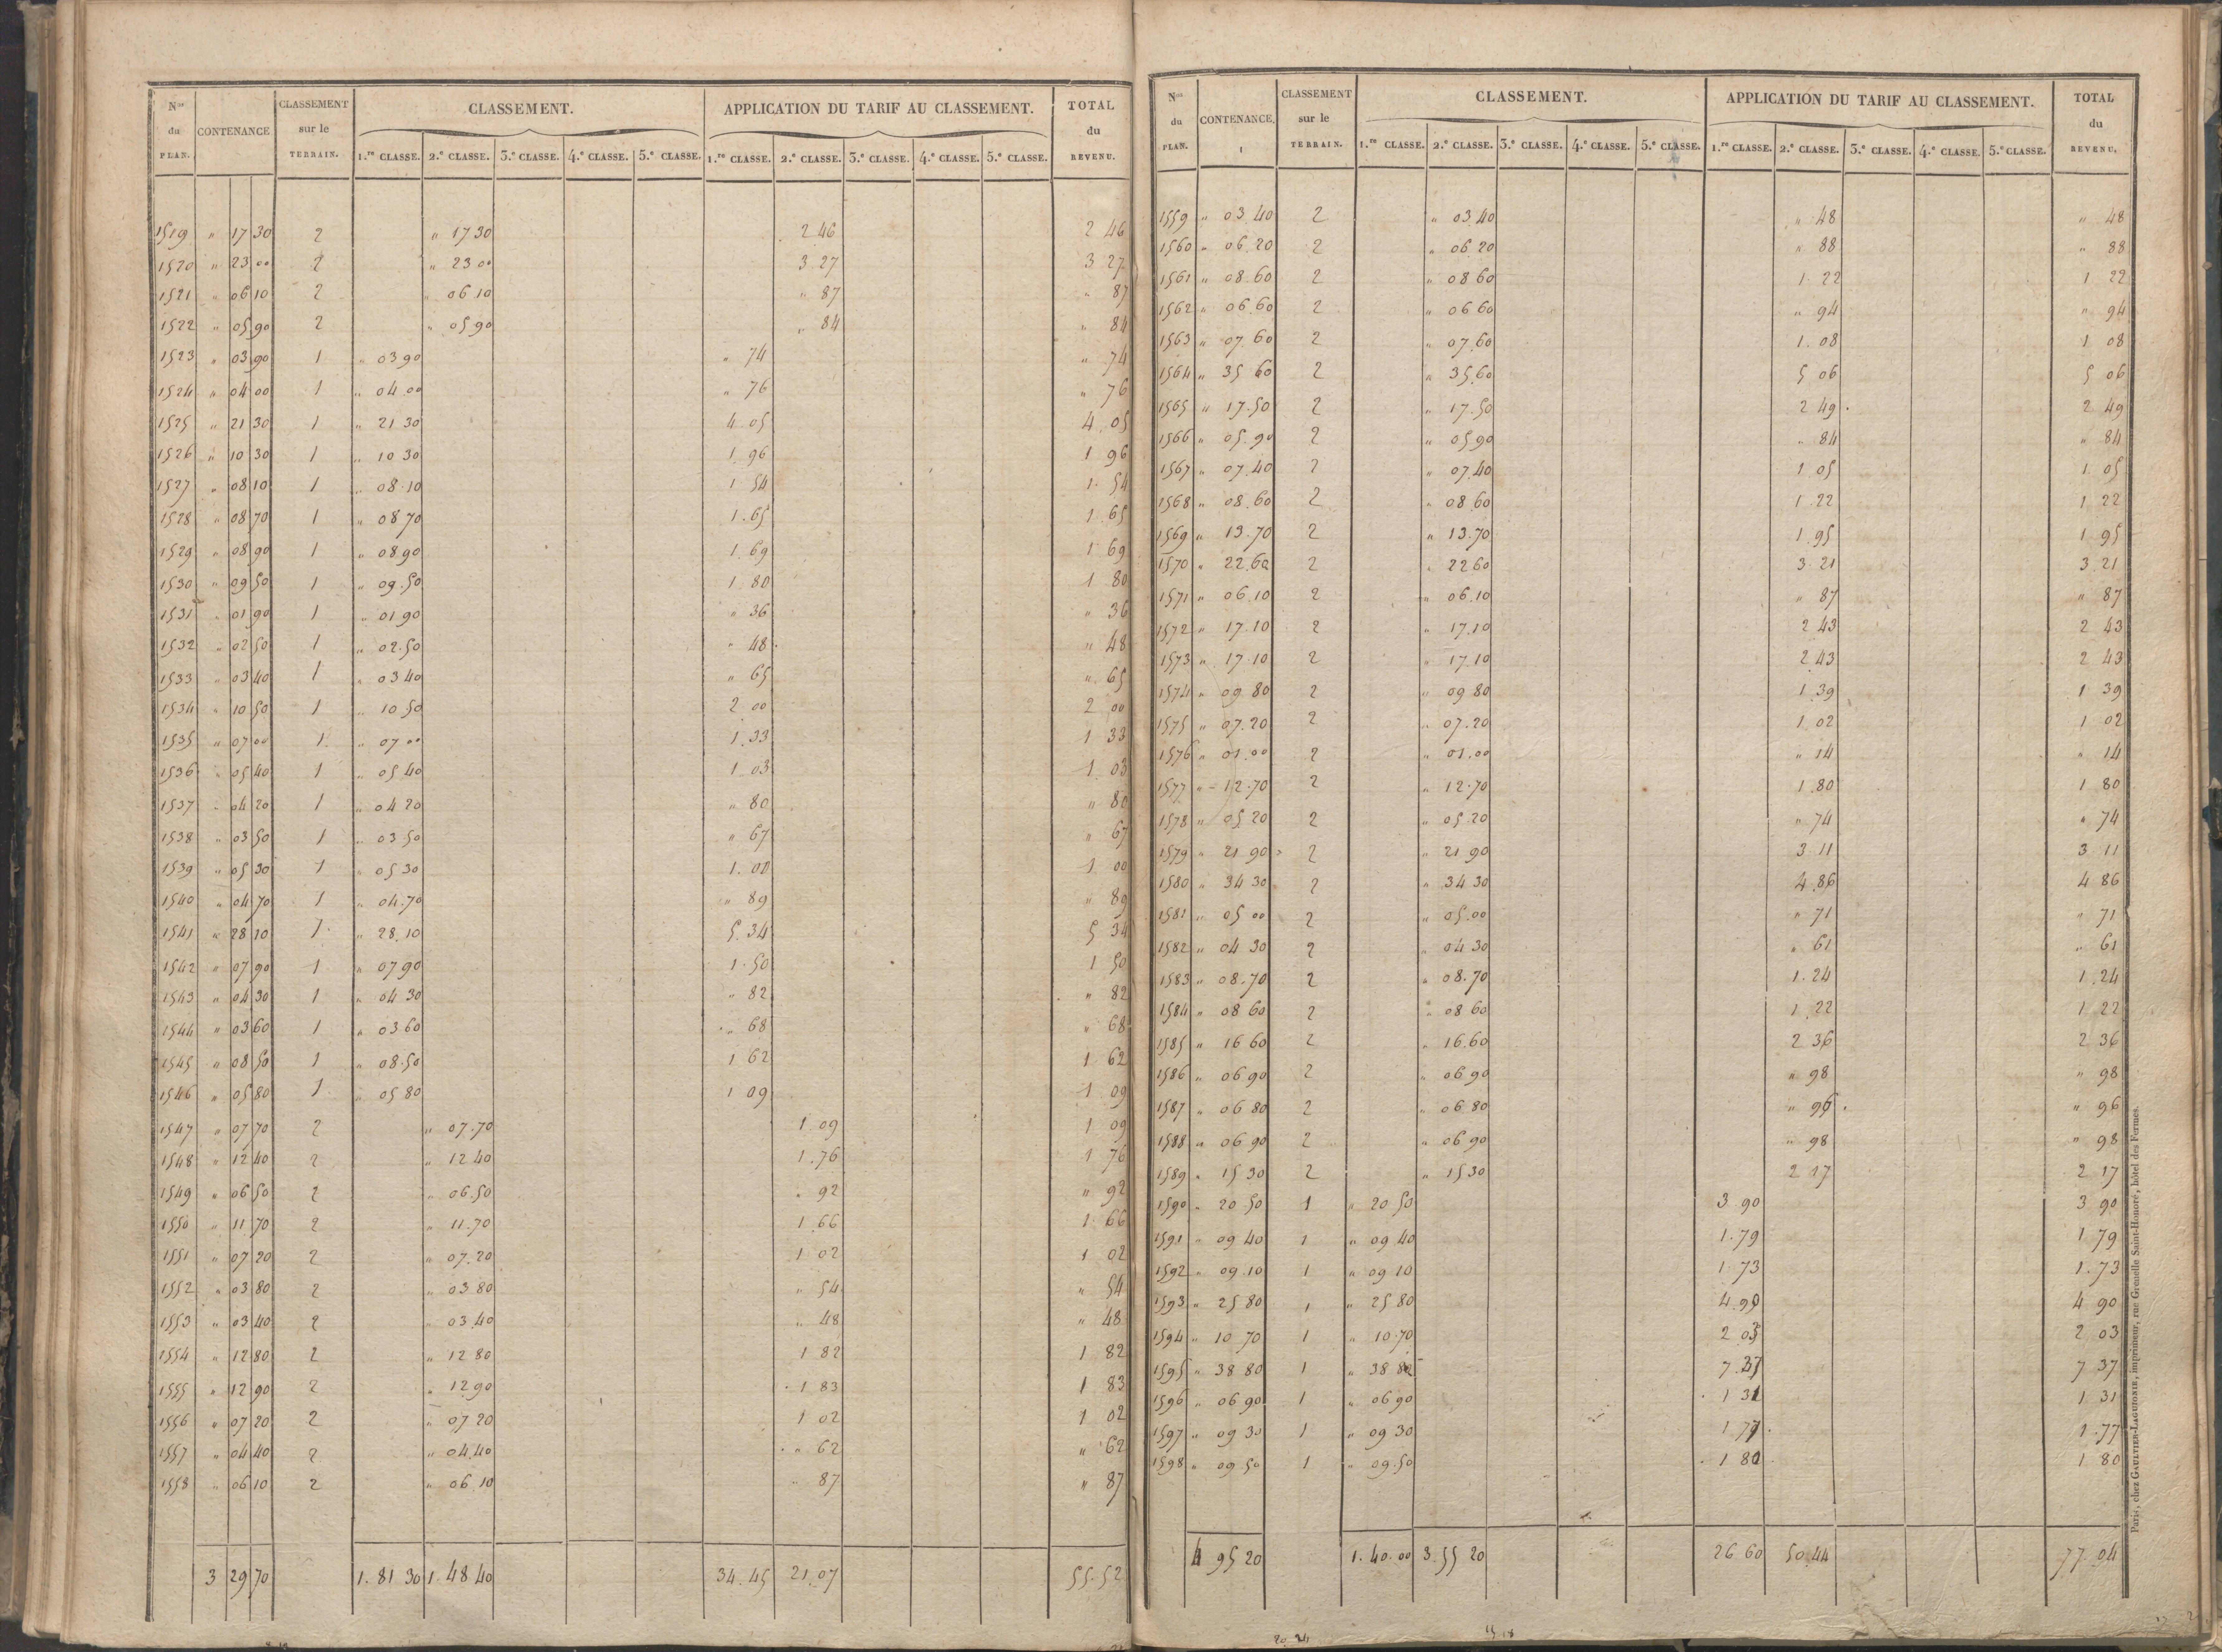 Nos du PLAN. CONTENANCE CLASSEMENT sur le TERRAIN. CLASSEMENT. APPLICATION DU TARIF AU CLASSEMENT. TOTAL du REVENU.
1.re CLASSE. 2.e CLASSE. 3.e CLASSE. 4.e CLASSE. 5.e CLASSE. 1.re CLASSE. 2.e CLASSE. 3.e CLASSE. 4.e CLASSE. 5.e CLASSE.
1519 " 17 30 2 " 17 30 2 46 2 46
1520 " 23 00 2 " 23 00 3 27 3 27
1521 " 06 10 2 " 06 10 " 87 " 87
1522 " 05 90 2 " 05 90 " 84 " 84
1523 " 03 90 1 " 03 90 " 74 " 74
1524 " 04 00 1 " 04 00 " 76 " 76
1525 " 21 30 1 " 21 30 4 05 4 05
1526 " 10 30 1 " 10 30 1 96 1 96
1527 " 08 10 1 " 08 10 1 54 1 54
1528 " 08 70 1 " 08 70 1.65 1 65
1529 " 08 90 1 " 08 90 1.69 1 69
1530 " 09 50 1 " 09.50 1 80 1 80
1531 " 01 90 1 " 01 90 " 36 " 36
1532 " 02 50 1 " 02.50 " 48 " 48
1533 " 03 40 1 " 03 40 " 65 " 65
1534 " 10 50 1 " 10 50 2 00 2 00
1535 " 07 00 1 " 07 00 1.33 1 33
1536 " 05 40 1 " 05 40 1 03 1 03
1537 " 04 20 1 " 04 20 " 80 " 80
1538 " 03 50 1 " 03 50 " 67 " 67
1539 " 05 30 1 " 05 30 1.00 1 00
1540 " 04 70 1 " 04.70 " 89 " 89
1541 " 28 10 1 " 28.10 5.34 5 34
1542 " 07 90 1 " 07 90 1.50 1 50
1543 " 04 30 1 " 04 30 " 82 " 82
1544 " 03 60 1 " 03 60 " 68 " 68
1545 " 08 50 1 " 08.50 1 62 1 62
1546 " 05 80 1 " 05 80 1 09 1 09
1547 " 07 70 2 " 07.70 1 09 1 09
1548 " 12 40 2 " 12 40 1.76 1 76
1549 " 06 50 2 " 06.50 " 92 " 92
1550 " 11 70 2 " 11.70 1 66 1 66
1551 " 07 20 2 " 07.20 1 02 1 02
1552 " 03 80 2 " 03 80 " 54 " 54
1553 " 03 40 2 " 03 40 " 48 " 48
1554 " 12 80 2 " 12 80 1 82 1 82
1555 " 12 90 2 " 12 90 1 83 1 83
1556 " 07 20 2 " 07 20 1 02 1 02
1557 " 04 40 2 " 04 40 " 62 " 62
1558 " 06 10 2 " 06 10 " 87 " 87
3 29 70 1.81 30 1 48 40 34.45 21.07 55.52
Nos du PLAN. CONTENANCE. CLASSEMENT sur le TERRAIN. CLASSEMENT. APPLICATION DU TARIF AU CLASSEMENT. TOTAL du REVENU.
1.re CLASSE. 2.e CLASSE. 3.e CLASSE. 4.e CLASSE. 5.e CLASSE. 1.re CLASSE. 2.e CLASSE. 3.e CLASSE. 4.e CLASSE. 5.e CLASSE.
1559 " 03 40 2 " 03 40 " 48 " 48
1560 " 06 20 2 " 06 20 " 88 " 88
1561 " 08.60 2 " 08 60 1.22 1 22
1562 " 06 60 2 " 06 60 " 94 " 94
1563 " 07 60 2 " 07.60 1.08 1 08
1564 " 35 60 2 " 35.60 5 06 5 06
1565 " 17.50 2 " 17.50 2 49 2 49
1566 " 05 90 2 " 05 90 " 84 " 84
1567 " 07.40 2 " 07 40 1 05 1 05
1568 " 08.60 2 " 08 60 1 22 1 22
1569 " 13.70 2 " 13.70 1.95 1 95
1570 " 22.60 2 " 22 60 3 21 3 21
1571 " 06.10 2 " 06.10 " 87 " 87
1572 " 17.10 2 " 17.10 2 43 2 43
1573 " 17.10 2 " 17.10 2 43 2 43
1574 " 09 80 2 " 09 80 1.39 1 39
1575 " 07.20 2 " 07.20 1.02 1 02
1576 " 01.00 2 " 01.00 " 14 " 14
1577 " 12.70 2 " 12.70 1.80 1 80
1578 " 05 20 2 " 05 20 " 74 " 74
1579 " 21 90 2 " 21 90 3 11 3 11
1580 " 34 30 2 " 34 30 4.86 4 86
1581 " 05 00 2 " 05.00 " 71 " 71
1582 " 04 30 2 " 04 30 " 61 " 61
1583 " 08.70 2 " 08.70 1.24 1.24
1584 " 08 60 2 " 08 60 1.22 1 22
1585 " 16 60 2 " 16.60 2 36 2 36
1586 " 06 90 2 " 06 90 " 98 " 98
1587 " 06 80 2 " 06 80 " 96 " 96
1588 " 06 90 2 " 06 90 " 98 " 98
1589 " 15 30 2 " 15 30 2 17 2 17
1590 " 20 50 1 " 20 50 3 90 3 90
1591 " 09 40 1 " 09 40 1.79 1 79
1592 " 09.10 1 " 09 10 1 73 1.73
1593 " 25 80 1 " 25 80 4 90
1594 " 10 70 1 " 10.70 2 03 2 03
1595 " 38 80 1 " 38 80 7.37 7 37
1596 " 06 90 1 " 06 90 1 31 1 31
1597 " 09 30 1 " 09 30 1 77 1.77
1598 " 09 50 1 " 09.50 1 80 1 80
4 95 20 1.40.00 3.55 20 26 60 50.44 77.04
Paris, chez GAULTIER-LAGUIONIE, imprimeur, rue Grenelle Saint-Honoré, hôtel des Fermes.